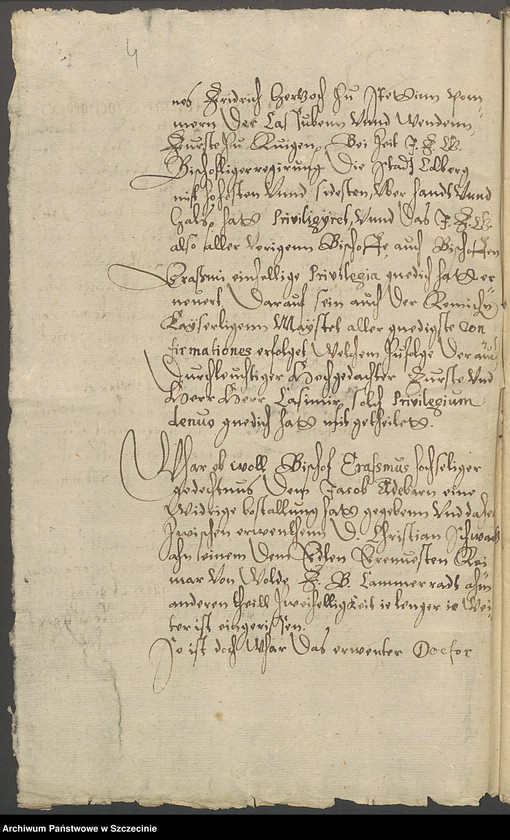 4
nes Fridrich Hertzoch zu Stettinn Pom-
mern der Cassubenn Vnnd Wendenn
Furste zu Ruigen, Bei Zeit J. F. G.
Bischofligerregirung die Stadt Colberg
mit hohesten Vnnd sidesten, Vber handt Vnnd
hals, hatt Priviligyret, Vnnd das J. F. G.
also aller Vorigenn Bischoffe, auch Bischoffen
Erasmi einhellige Privilegia gnedich hatt er
neuert Darauf sein auch der Romischen
Kayserligenn Maystet aller gnedigste Con
firmationes erfolget Welchem zufolge der auch
Durchleuchtiger Hochgedachter Furste vnd
Herr Herr Casimir, solch Privilegium
denuo gnedich hatt mitgetheilet.
Whar ob woll Bischof Erasmus hochseliger
gedechtnus Dem Jacob Adebarn eine
Widrige bestallung hatt gegebenn Vnd daher
Zwischen erwenthem D. Christian Schwartz
ahn einem Dem Edlen Erenuesten Rei
mar Von Wolde F. G. Cammerradt ahm
anderen theill Zweihelligkeit ie lenger ie Wei-
ter ist eingerissen.
So ist doch Whar das erwenter Doctor
Archiwum Państwowe w Szczecinie